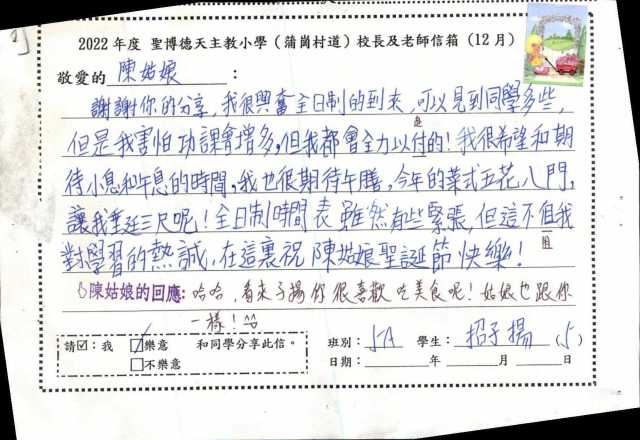 2022 年度 聖博德天主教小學（蒲崗村道）校長及老師信箱（12 月）
敬愛的 陳姑娘 ：
謝謝你的分享，我很興奮全日制的到來，可以見到同學多些，
但是我害怕功課會增多，但我都會全力以付的！我很希望和期
待小息和午息的時間，我也很期待午膳，今年的菜式五花八門，
讓我垂涎三尺呢！全日制時間表雖然有些緊張，但這不俎我
對學習的熱誠，在這裏祝陳姑娘聖誕節快樂！
陳姑娘的回應：哈哈，看來子揚你很喜歡吃美食呢！姑娘也跟你
一樣！^^
請☑：我 ☑樂意 和同學分享此信。
□不樂意
班別： 5A 學生： 招子揚 (5)
日期： 年 月 日